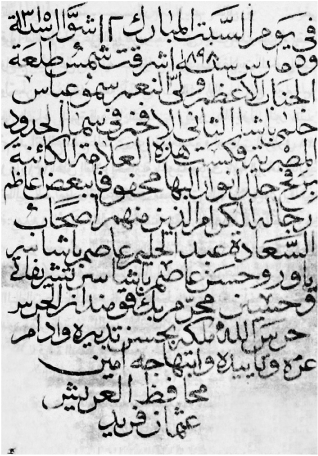 في يوم السبت المبارك ١٢ شوال سنة ١٣١٥
و٥ مارس سنة ١٨٩٨ اشرقت شمس طلعة
الجناب الاعظم ولي النعم سمو عباس
حلمي باشا الثاني الافخم في سما الحدود
المصرية فكست هذه العلامة الكائنة
برفح حلل انوار البها محفوفا ببعض اعاظم
رجاله الكرام الذين منهم اصحاب
السعادة عبد الحليم عاصم باشا سر
ياور وحسن عاصم باشا سر تشريفاتي
وحسين محرم بك قومندان الحرس
حرس الله ملكه بحسن تدبيره وادام
عزه وتاييده وابتهاجه امين
محافظ العريش
عثمان فريد